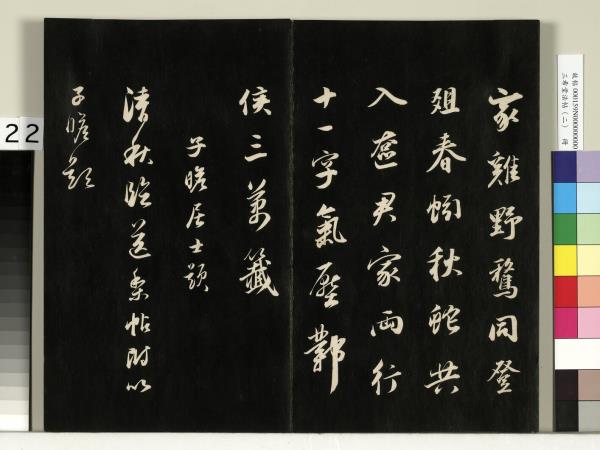 家雞野鶩同登
俎春蚓秋蛇共
入奩君家兩行
十一字氣壓鄴
侯三萬籤
子瞻居士題
清秋臨送梨帖附以
子瞻
22
故帖 000159N000000000
三希堂法帖(二) 冊